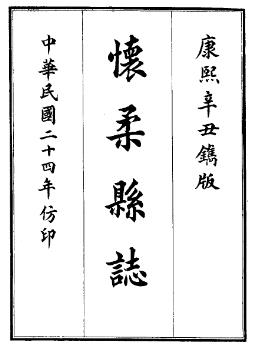 康熙辛丑鐫版
懷柔縣誌
中華民國二十四年仿印